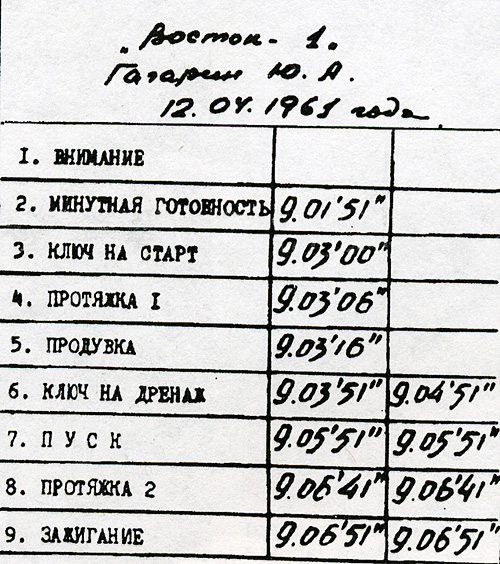 „Восток - 1"
Гагарин Ю. А.
12.04.1961 года
1. ВНИМАНИЕ
2. МИНУТНАЯ ГОТОВНОСТЬ 9.01'51"
3. КЛЮЧ НА СТАРТ 9.03'00"
4. ПРОТЯЖКА I 9.03'06"
5. ПРОДУВКА 9.03'16"
6. КЛЮЧ НА ДРЕНАЖ 9.03'51" 9.04'51"
7. П У С К 9.05'51" 9.05'51"
8. ПРОТЯЖКА 2 9.06'41" 9.06'41"
9. ЗАЖИГАНИЕ 9.06'51" 9.06'51"